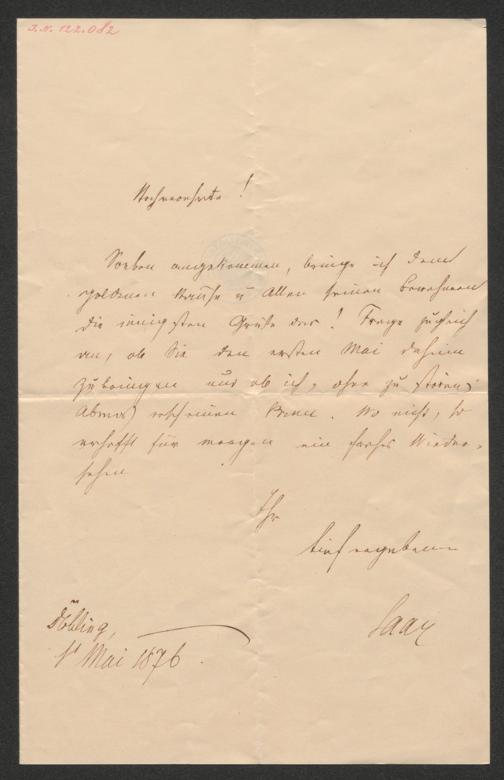 I.N. 122.082
Hochverehrte!
Soeben angekommen, bringe ich dem
goldenen Hause u Allen seinen Bewohnern
die innigsten Grüße dar! Frage zugleich
an, ob Sie den ersten Mai daheim
zubringen und ob ich, ohne zu stören,
Abends erscheinen kann. Wo nicht, so
erhofft für morgen ein frohes Wieder-
sehen
Ihr
tiefergebener
Saar
Döbling,
1t Mai 1876.